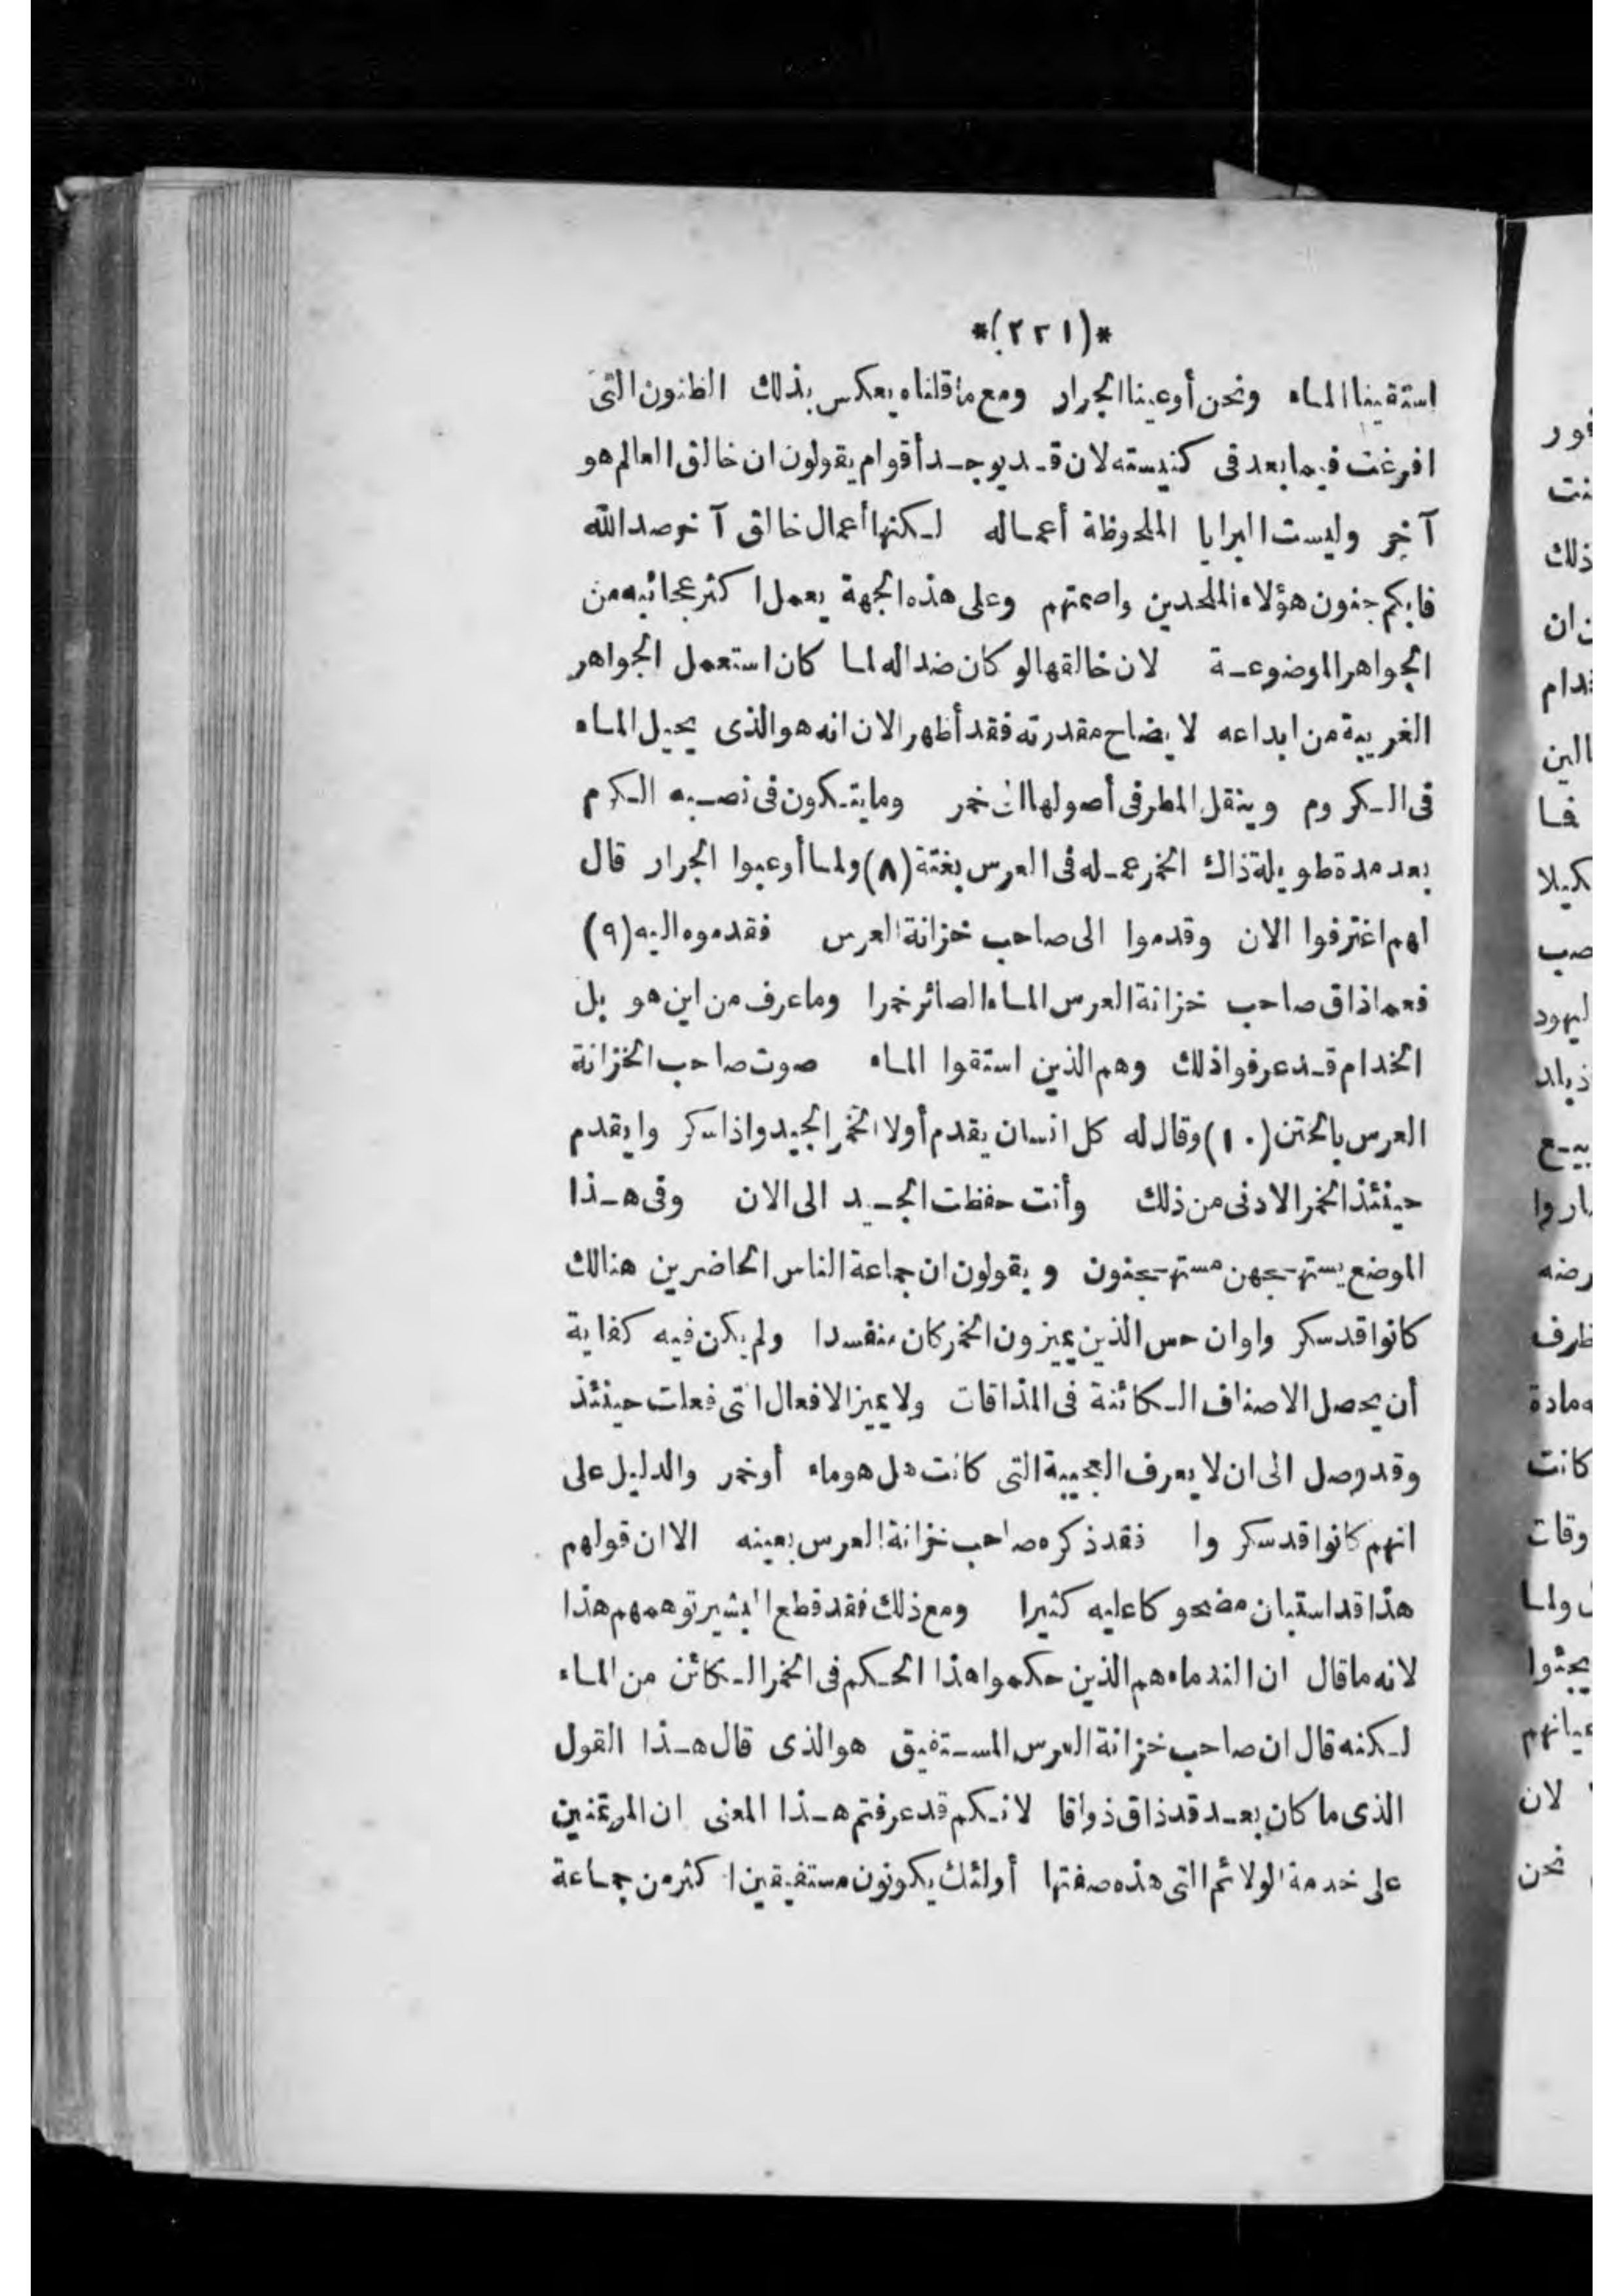 *(٢٢١)*
استقينا الماء ونحن أوعينا الجرار ومع ما قلناه يعكس بذلك الظنون التى
افرغت فيما بعد فى كنيسته لان قد يوجد أقوام يقولون ان خالق العالم هو
آخر وليست البرايا الملحوظة أعماله لكنها أعمال خالق آخر ضد الله
فابكم جنون هؤلاء الملحدين واصمتهم وعلى هذه الجهة يعمل اكثر عجائبه من
الجواهر الموضوعة لان خالقها لو كان ضدا له لما كان استعمل الجواهر
الغريبة من ابداعه لايضاح مقدرته فقد أظهر الان انه هو الذى يحيل الماء
فى الكروم وينقل المطر فى أصولها الى خمر وما يتكون فى نصبه الكرم
بعد مدة طويلة ذاك الخمر عمله فى العرس بغتة (٨) ولما أوعبوا الجرار قال
لهم اغترفوا الان وقدموا الى صاحب خزانة العرس فقدموه اليه (٩)
فعما ذاق صاحب خزانة العرس الماء الصائر خمرا وما عرف من اين هو بل
الخدام قد عرفوا ذلك وهم الذين استقوا الماء صوت صاحب الخزانة
العرس بالختن (١٠) وقال له كل انسان يقدم أولا الخمر الجيد واذا سكر وا يقدم
حينئذ الخمر الادنى من ذلك وأنت حفظت الجيد الى الان وفى هذا
الموضع يستهجن مستهجنون ويقولون ان جماعة الناس الحاضرين هنالك
كانوا قد سكر وا وان حس الذين يميزون الخمر كان منفسدا ولم يكن فيه كفاية
أن يحصل الاصناف الكائنة فى المذاقات ولا يميز الافعال التى فعلت حينئذ
وقد وصل الى ان لا يعرف العجيبة التى كانت هل هو ماء أو خمر والدليل على
انهم كانوا قد سكر وا فقد ذكره صاحب خزانة العرس بعينه الا ان قولهم
هذا قد استبان مضحوكا عليه كثيرا ومع ذلك فقد قطع البشير توهمهم هذا
لانه ما قال ان الندماء هم الذين حكموا هذا الحكم فى الخمر الكائن من الماء
لكنه قال ان صاحب خزانة العرس المستفيق هو الذى قال هذا القول
الذى ما كان بعد قد ذاق ذواقا لانكم قد عرفتم هذا المعنى ان المؤتمنين
على خدمة الولائم التى هذه صفتها أولئك يكونون مستفيقين اكثر من جماعة